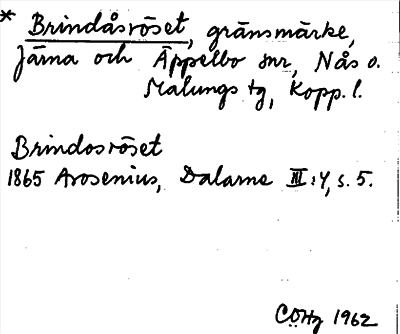 * Brindåsröset, gränsmärke,
Järna och Äppelbo snr, Nås o.
Malungs tg, Kopp. l.
Brindosröset
1865 Arosenius, Dalarne III:4, s. 5.
CÖHg 1962